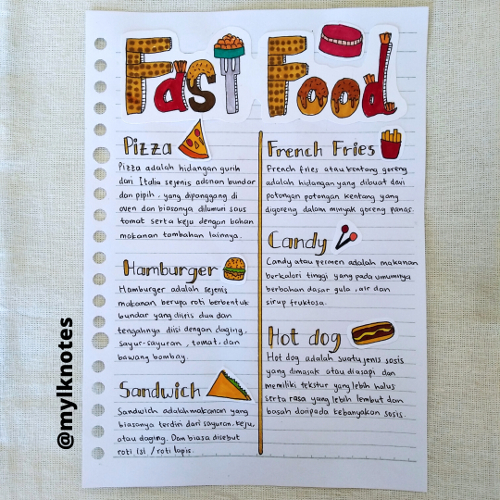 Fast Food
Pizza
Pizza adalah hidangan gurih
dari Italia sejenis adonan bundar
dan pipih, yang dipanggang di
oven dan biasanya dilumuri saus
tomat serta keju dengan bahan
makanan tambahan lainnya.
Hamburger
Hamburger adalah sejenis
makanan berupa roti berbentuk
bundar yang diiris dua dan
tengahnya diisi dengan daging,
sayur-sayuran, tomat, dan
bawang bombay.
Sandwich
Sandwich adalah makanan yang
biasanya terdiri dari sayuran, keju,
atau daging. Dan biasa disebut
roti isi / roti lapis.
French Fries
French fries atau kentang goreng
adalah hidangan yang dibuat dari
potongan potongan kentang yang
digoreng dalam minyak goreng panas.
Candy
Candy atau permen adalah makanan
berkalori tinggi yang pada umumnya
berbahan dasar gula, air dan
sirup fruktosa.
Hot dog
Hot dog adalah suatu jenis sosis
yang dimasak atau diasapi dan
memiliki tekstur yang lebih halus
serta rasa yang lebih lembut dan
basah daripada kebanyakan sosis.
@mylknotes